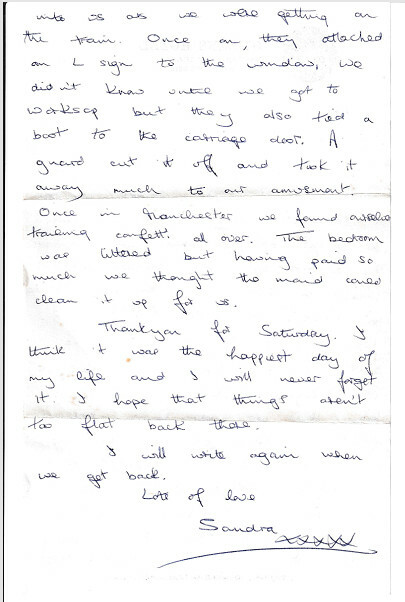 into us as we were getting on
the train. Once on, they attached
an L sign to the window, we
didn't know until we got to
Worksop but they also tied a
boot to the carriage door. A
guard cut it off and took it
away much to our amusement.
Once in Manchester we found ourselves
trailing confetti all over. The bedroom
was littered but having paid so
much we thought the maid could
clean it up for us.
Thankyou for Saturday. I
think it was the happiest day of
my life and I will never forget
it. I hope that things aren't
too flat back there.
I will write again when
we get back.
Lots of love
Sandra xxxxx